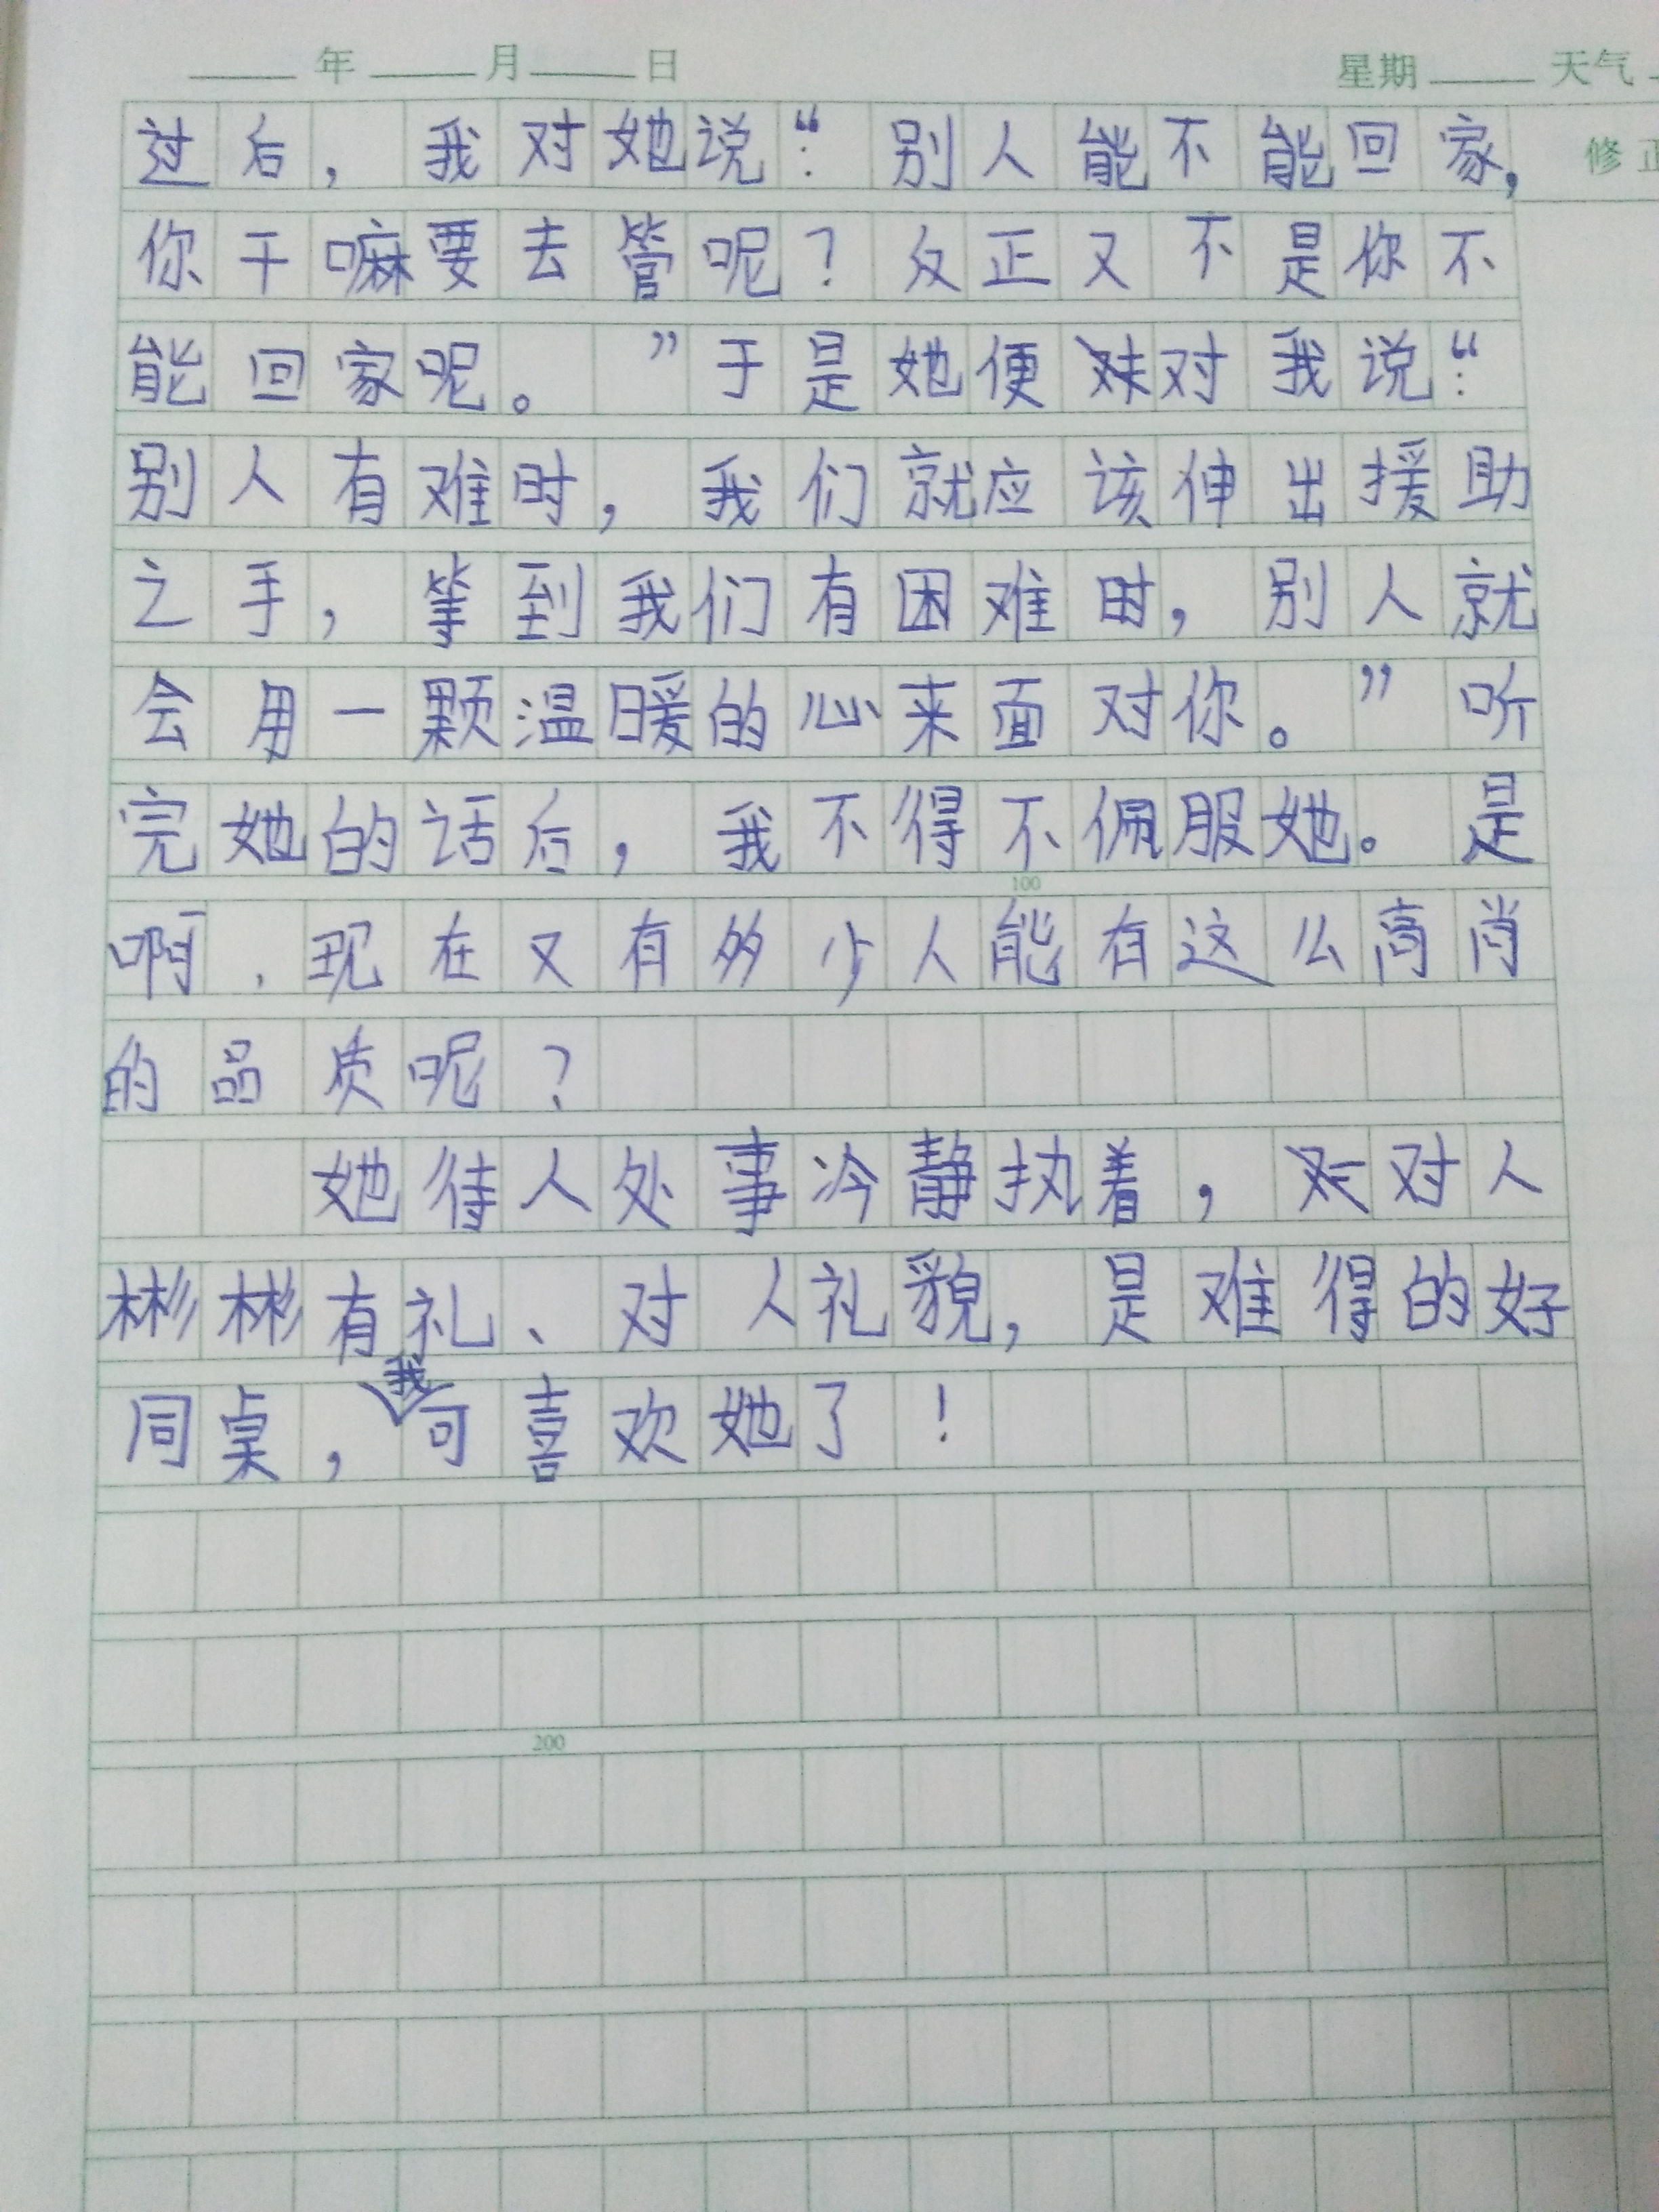 年 月 日 星期 天气
修正
过后，我对她说：“别人能不能回家，
你干嘛要去管呢？反正又不是你不
能回家呢。”于是她便对我说：“
别人有难时，我们就应该伸出援助
之手，等到我们有困难时，别人就
会用一颗温暖的心来面对你。”听
完她的话后，我不得不佩服她。是
100
啊，现在又有多少人能有这么高尚
的品质呢？
她待人处事冷静执着，对人
彬彬有礼、对人礼貌，是难得的好
同桌，我可喜欢她了！
200